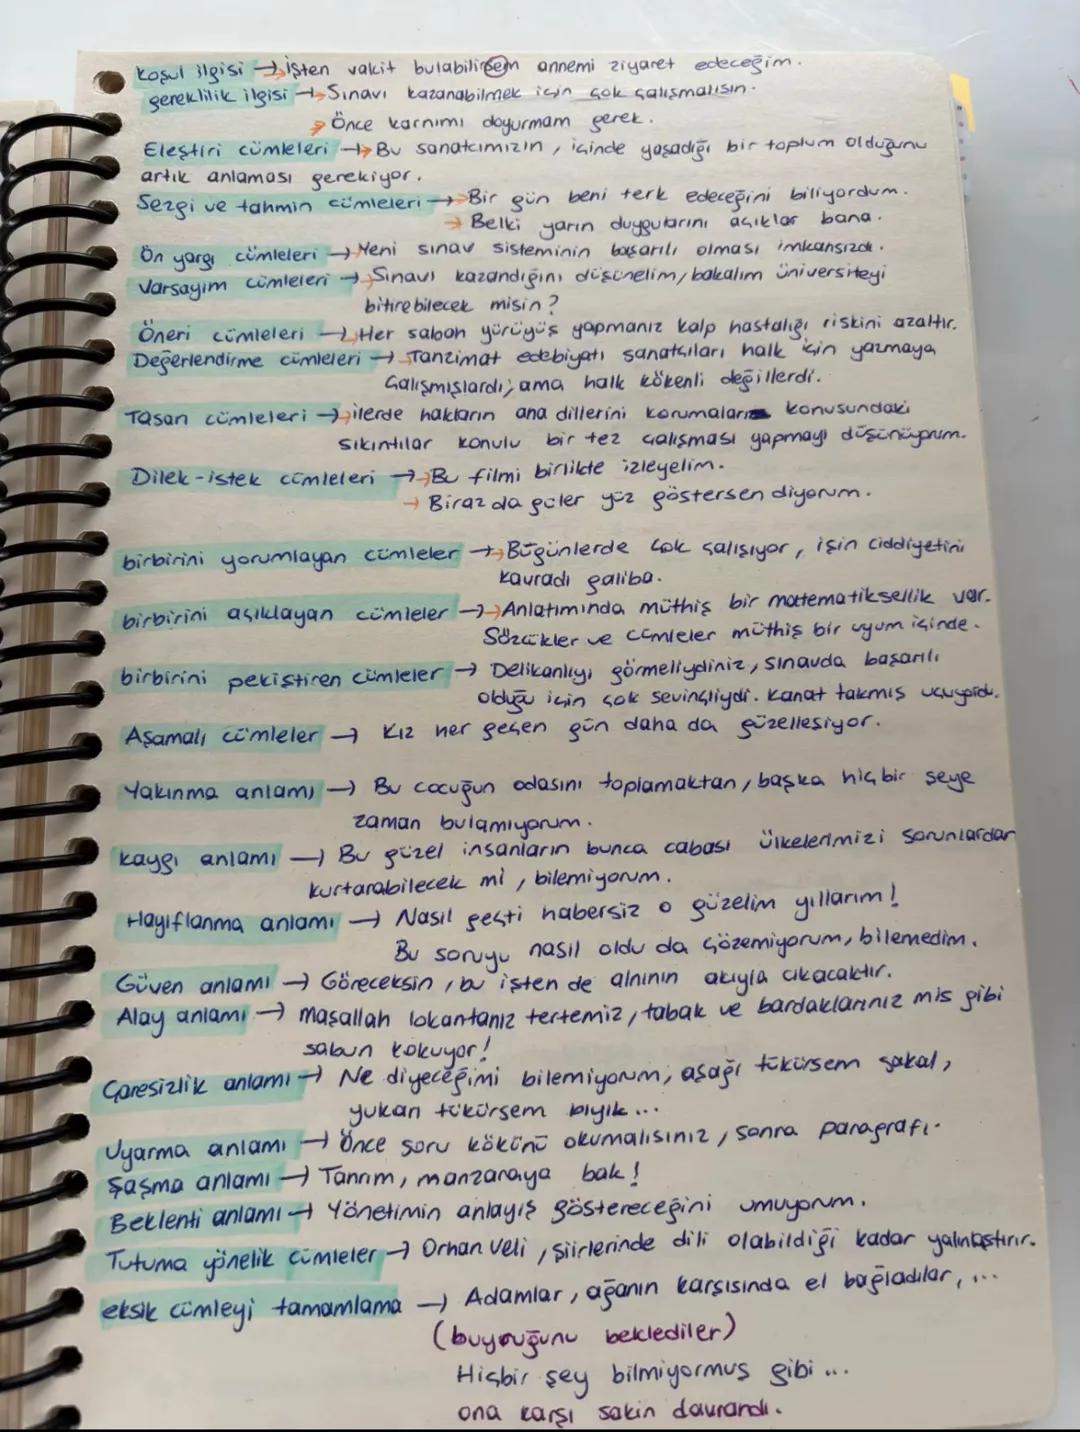 koşul ilgisi → işten vakit bulabilirsem annemi ziyaret edeceğim.
gereklilik ilgisi → Sınavı kazanabilmek için çok çalışmalısın.
→ Önce karnımı doyurmam gerek.
Eleştiri cümleleri → Bu sanatcımızın, içinde yaşadığı bir toplum olduğunu
artık anlaması gerekiyor.
Sezgi ve tahmin cümleleri → Bir gün beni terk edeceğini biliyordum.
→ Belki yarın duygularını açıklar bana.
Ön yargı cümleleri → Yeni sınav sisteminin başarılı olması imkansızdı.
Varsayım cümleleri → Sınavı kazandığını düşünelim, bakalım üniversiteyi
bitirebilecek misin?
Öneri cümleleri → Her sabah yürüyüş yapmanız kalp hastalığı riskini azaltır.
Değerlendirme cümleleri → Tanzimat edebiyatı sanatçıları halk için yazmaya
çalışmışlardı; ama halk kökenli değillerdi.
Tasarı cümleleri → ilerde hakların ana dillerini korumaları konusundaki
sıkıntılar konulu bir tez çalışması yapmayı düşünüyorum.
Dilek-istek cümleleri → Bu filmi birlikte izleyelim.
→ Biraz da güler yüz göstersen diyorum.
birbirini yorumlayan cümleler → Bugünlerde çok çalışıyor, işin ciddiyetini
kavradı galiba.
birbirini açıklayan cümleler → Anlatımında müthiş bir matematiksellik var.
Sözcükler ve cümleler müthiş bir uyum içinde.
birbirini pekiştiren cümleler → Delikanlıyı görmeliydiniz, sınavda başarılı
olduğu için çok sevinçliydi. Kanat takmış uçuyordu.
Aşamalı cümleler → Kız her geçen gün daha da güzelleşiyor.
Yakınma anlamı → Bu cocuğun odasını toplamaktan, başka hiçbir şeye
zaman bulamıyorum.
kaygı anlamı → Bu güzel insanların bunca cabası ülkelerimizi sorunlardan
kurtarabilecek mi, bilemiyorum.
Hayıflanma anlamı → Nasıl geçti habersiz o güzelim yıllarım!
Bu soruyu nasıl oldu da çözemiyorum, bilemedim.
Güven anlamı → Göreceksin, bu işten de alnının akıyla cıkacaktır.
Alay anlamı → maşallah lokantanız tertemiz, tabak ve bardaklarınız mis gibi
sabun kokuyor!
Çaresizlik anlamı → Ne diyeceğimi bilemiyorum; aşağı tükürsem sakal,
yukarı tükürsem bıyık...
Uyarma anlamı → Önce soru kökünü okumalısınız, sonra paragrafı.
Şaşma anlamı → Tanrım, manzaraya bak!
Beklenti anlamı → Yönetimin anlayış göstereceğini umuyorum.
Tutuma yönelik cümleler → Orhan Veli, şiirlerinde dili olabildiği kadar yalınlaştırır.
eksik cümleyi tamamlama → Adamlar, ağanın karşısında el bağladılar, ...
(buyruğunu beklediler)
Hiçbir şey bilmiyormuş gibi ...
ona karşı sakin davrandı.